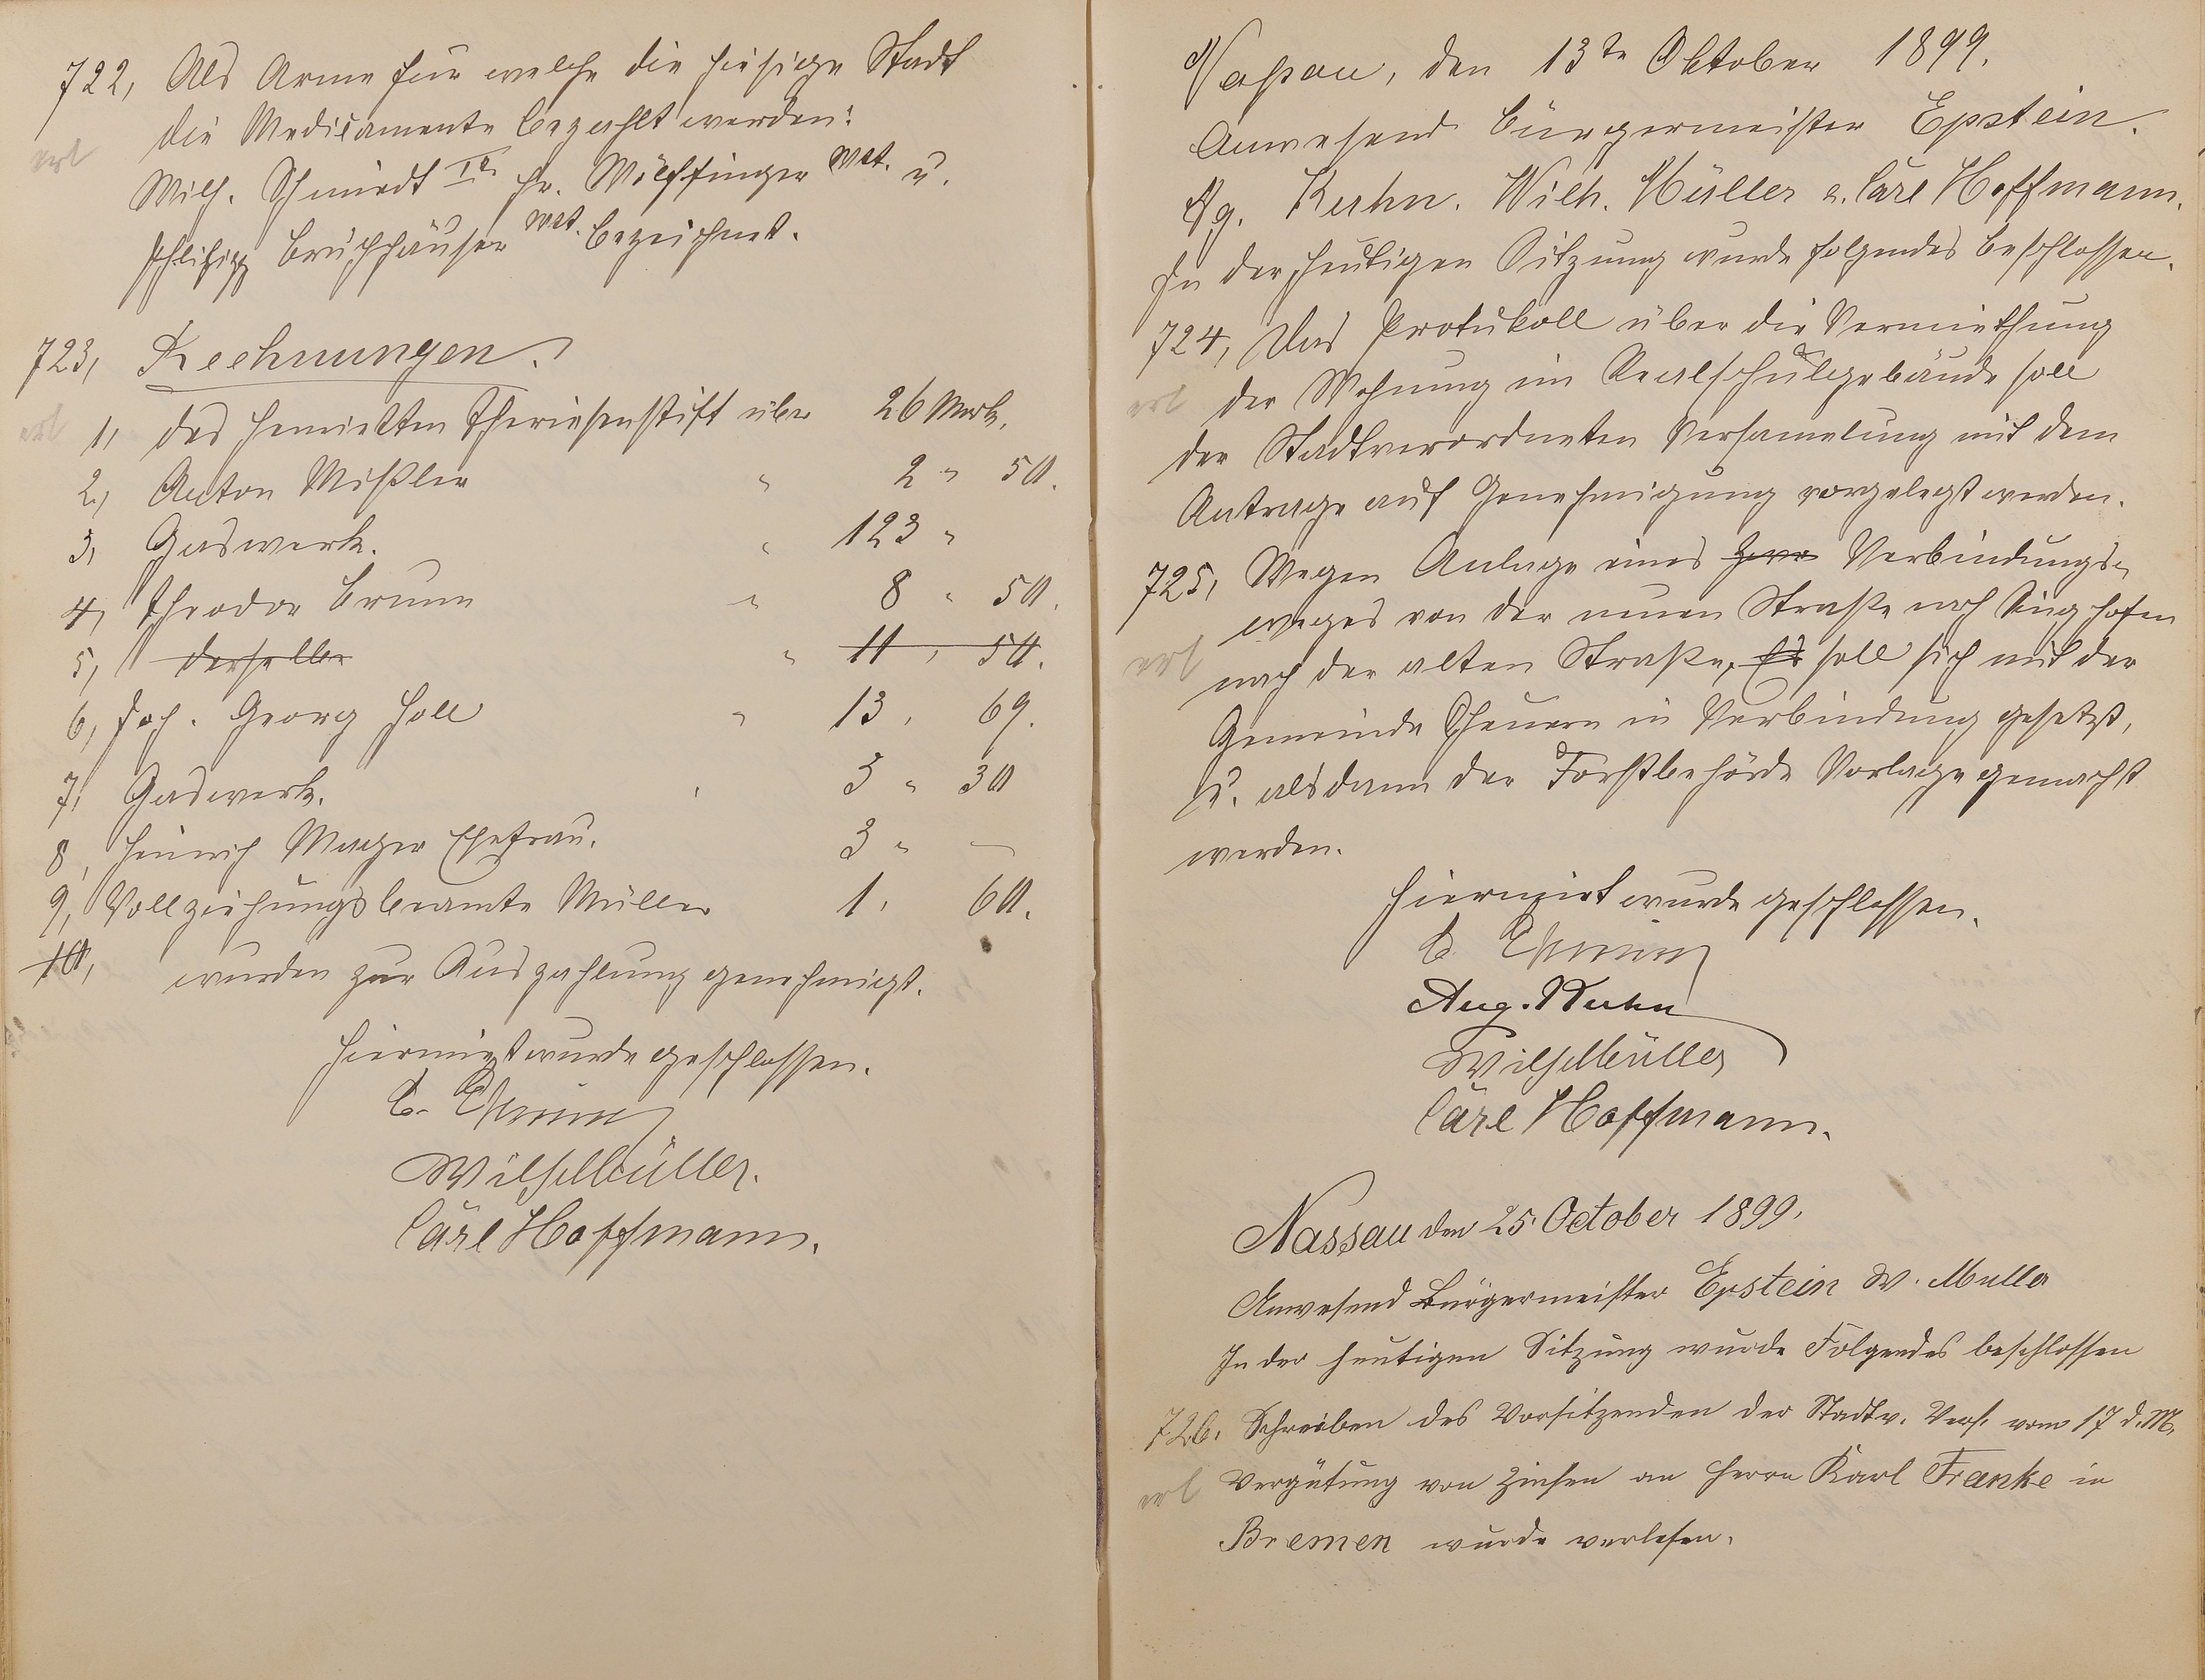 722, Als Arme für welche die hiesige Stadt
die Medicamente bezahlt werden:
erl
Wilh. Schmidt IIr Hr. Wölffinger Wwt. u.
Philipp Bruchhäuser Wwt. bezeichnet.
723, Rechnungen.
erl
1, des Henrietten Theresenstift über 26 Mark.
2, Anton Mißler " 2 " 50.
3, Gaswerk. " 123 "
4, Theodor Brunn " 8 " 50.
5, derselbe " 11 , 50.
6, Joh. Georg Holl " 13, 69.
7, Gaswerk. " 3 " 30
8, Heinrich Mager Ehefrau. 3 " —
9, Vollziehungsbeamte Müller 1, 60.
10, wurden zur Auszahlung genehmigt.
Hiermit wurde geschlossen.
Wilh Müller.
Carl Hoffmann.
Naßau, den 13te Oktober 1899.
Anwesend Bürgermeister Epstein.
Ag. Kuhn. Wilh. Müller u. Carl Hoffmann.
In der heutigen Sitzung wurde folgendes beschlossen.
724, Das Protukoll über die Vermiethung
erl
der Wohnung im Realschulgebäude soll
der Stadtverordneten Versamelung mit dem
Antrage auf Genehmigung vorgelegt werden.
725, Wegen Anlage eines Verbindungs-
weges von der neuen Straße nach Singhofen
erl
nach der alten Straße, Es soll sich mit der
Gemeinde Scheuern in Verbindung gesetzt,
u. alsdann der Forstbehörde Vorlage gemacht
werden.
Hiermit wurde geschlossen.
Aug. Kuhn
Wilh Müller
Carl Hoffmann.
Nassau den 25. October 1899.
Anwesend Bürgermeister Epstein W. Muller
In der heutigen Sitzung wurde Folgendes beschlossen
726. Schreiben des Vorsitzenden der Stadtv. Vers. vom 17 d. M.
erl
Vergütung von Zinsen an Herrn Karl Franke in
Bremen wurde verlesen.